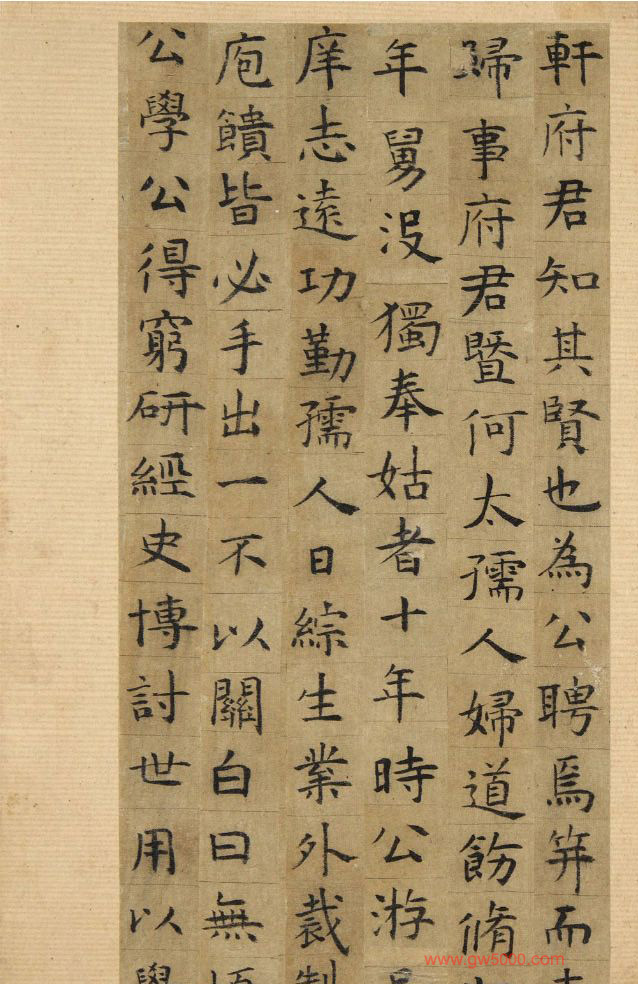 軒府君知其賢也為公聘焉笄而
歸事府君暨何太孺人婦道飭脩
年舅没獨奉姑者十年時公游
庠志遠功勤孺人日綜生業外裁制
庖饋皆必手出一不以關白曰無
公學公得窮研經史博討世用以學
www.gw5000.com